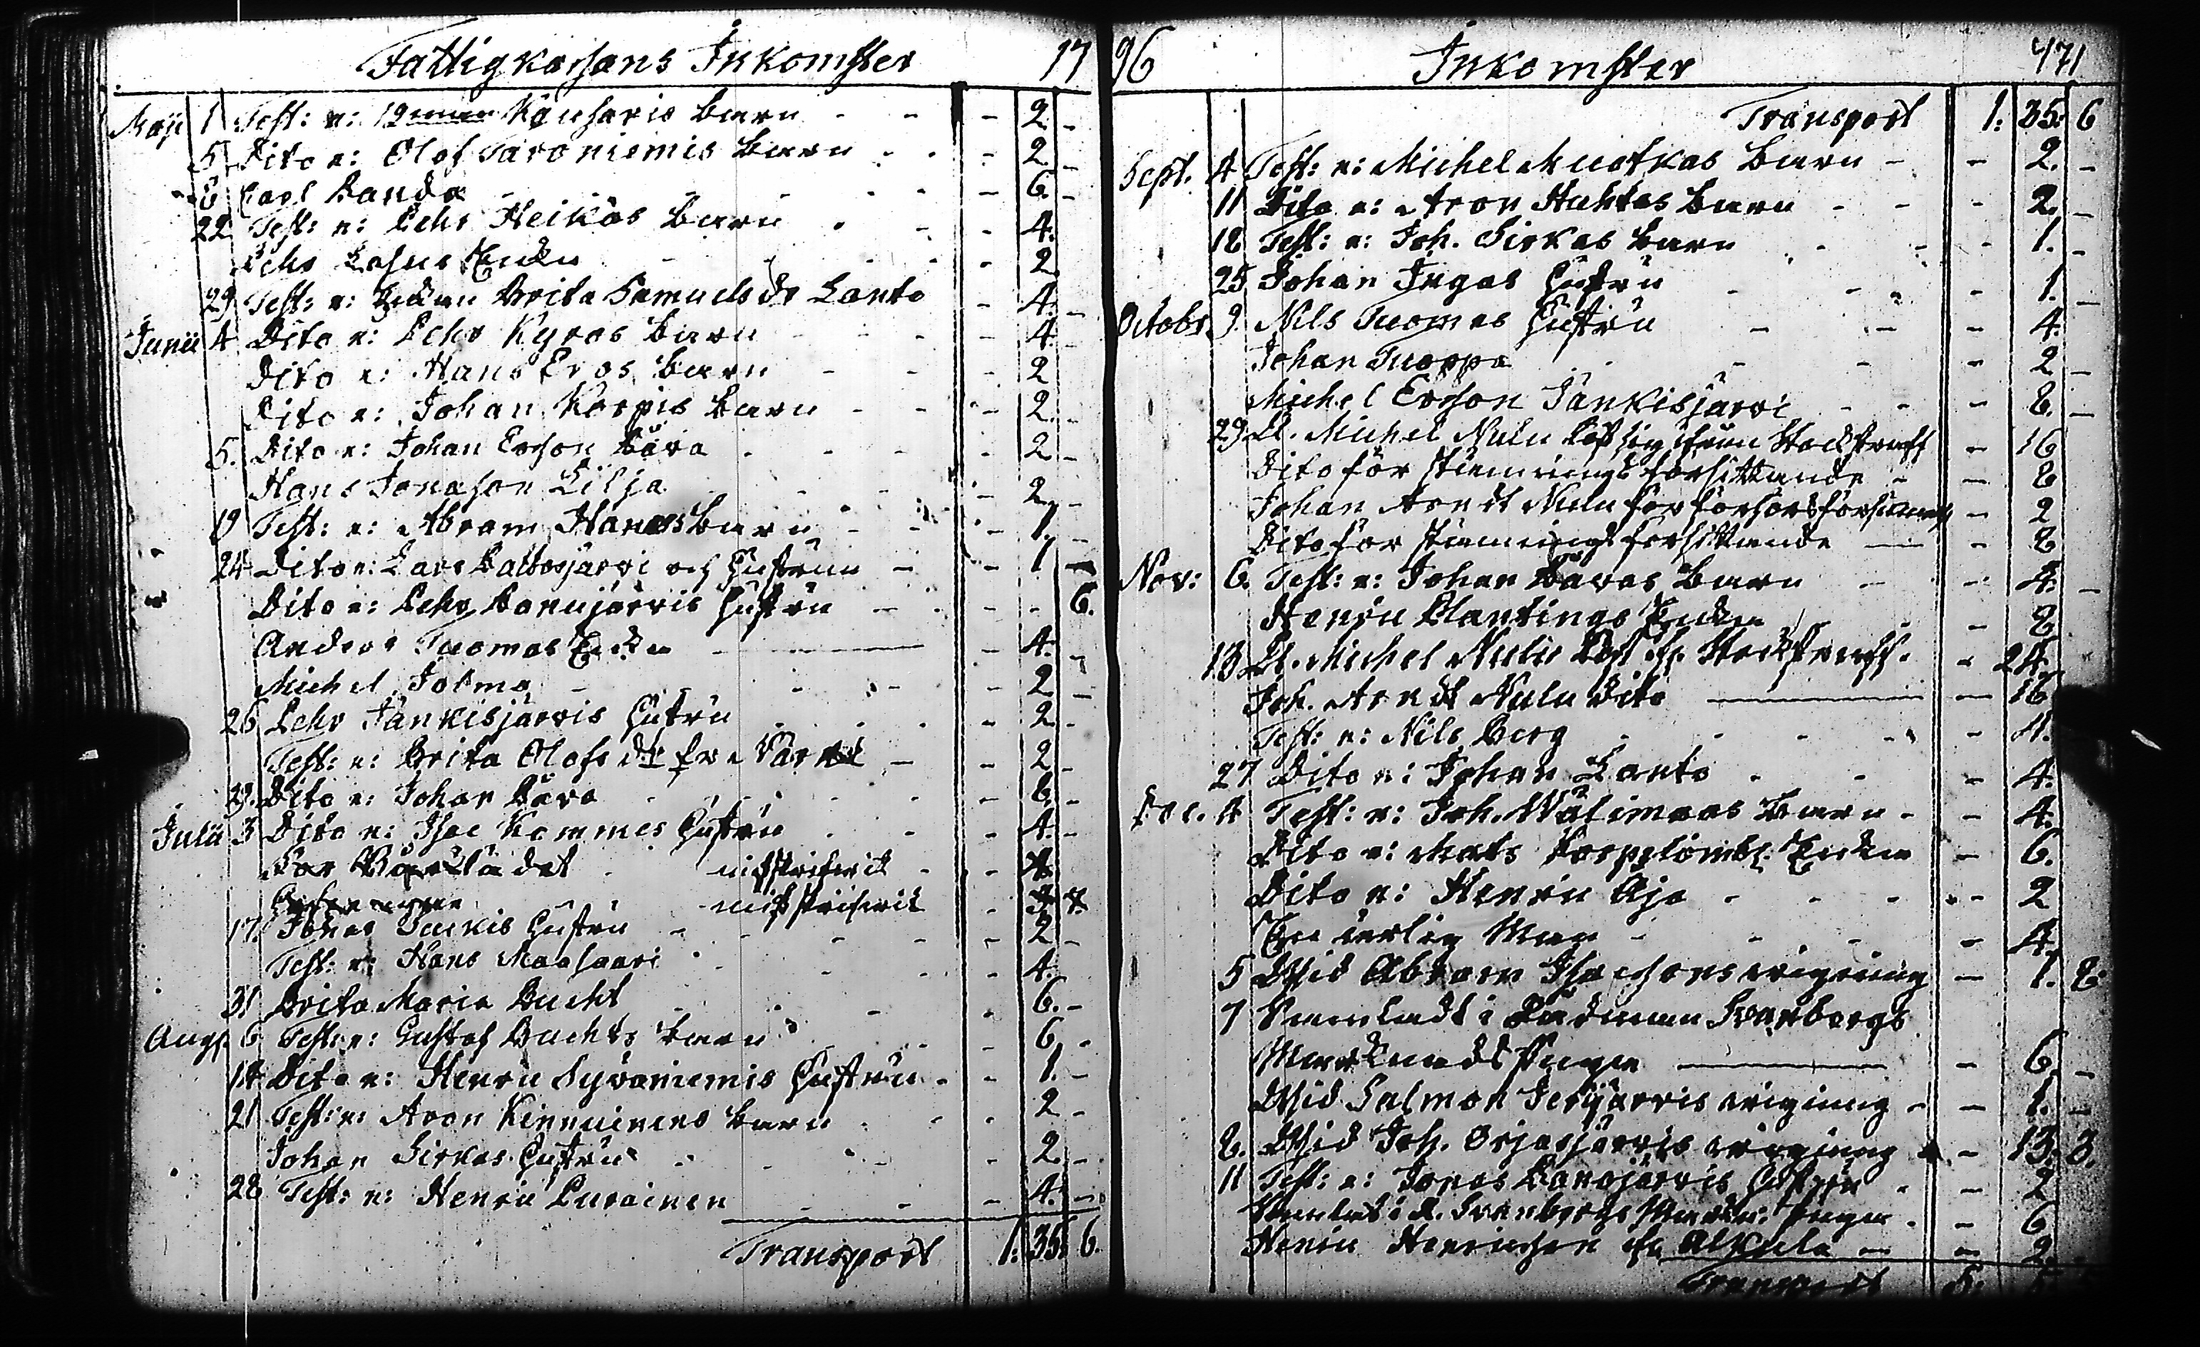 Fattigkassans Inkomster 17
Maji 1 Test: e: Kansaris barn - - - 2 -
5 Dito e: Olof Taroniemis barn - - - 2 -
8 Carl Banda - - - 6 -
22 Test: e: Pehr Heikas barn - - - 4. -
Pehr Lassus Enka - - - 2
29. Test: e: Enkan Brita Samuels dr Lanto - 4. -
Junii 4 Dito e: Pehr Kyrös barn - - - 4 -
Dito e: Hans Eros barn - - - 2
Dito e: Johan Korpis barn - - - 2. -
5. Dito e: Johan Ersson Bära - - - 2 -
Hans Jonasson Lilja - - - 2 -
19 Test: e: Abram Hanes barn - - - 1. -
24 Dito e: Lars Pattosjärvi och Hustrun - - 1 -
Dito e: Pehr Bonujärvis Hustru - - - 6.
Anders Tuomas Enka - 4. -
Michel Jolma - - - 2 -
26 Pehr Tankisjärvis Hustru - - - 2 -
Test: e: Brita Olofs dr fr. - - 2 -
29. Dito e: Johan Bära - - - 6. -
Julii 3 Dito e: Isac Kommes Hustru - - - 4. -
För Bårklädet misskrifvit - 4
misskrifvit
17. Jonas Hustru - - - 2 -
Test: e: Hans Maasaari - - - 4. -
31 Brita Maria Bucht - - - 6. -
Aug. 6 Test: e: Gustaf Buchts barn - - - 6. -
14 Dito e: Henric Syvaniemis Hustru - - 1. -
21 Test: e: Aron Kinnuinens barn - - - 2 -
Johan Sirkas Hustru - - - 2 -
28 Test: e: Henric Purainen - - - 4. -
Transport 1. 35. 6.
96 Inkomster 471
Transport 1: 35: 6
Sept. 4 Test: e: Michel Muotkas barn - - 2. -
11 Dito e: Aron Huhtas barn - - - 2. -
18 Test: e: Joh. Sirkas barn - - 1. -
25 Johan Ingas Hustru - - - 1. -
Octobr. 9. Nils Tuomas Hustru - - - 4.
Johan Tuoppa - - - 2 -
Michel Ersson Tankisjärvi - - - 8. -
29 D. Michel Nulu löst sig ifrån Stockstraff - 16
Dito för stämnings försittande - - 8
Johan Arndt Nulu för förhörs - 2
Dito för stämnings försittande - - 8
Nov: 6 Test: e: Johan Bäras barn - - 4. -
Henric Plantings Enka - 8
13 D. Michel Nulu Löst fr. Stockstraff. - 24.
Joh. Arndt Nulu Dito - 16
Test: e: Nils Berg - - - 4.
27 Dito e: Johan Lanto - - - 4.
Dec. 4 Test: e: Joh. Wälimaas barn - - 4.
Dito e: Mats Korpelombl. Enka - 6.
Dito e: Henric Aja - - - 2
En ärlig Man - - - 4.
5 Wid Abram Isacssons vigning - 1. 8.
7 Samladt i Svanborgs
Marknads Pungen - 6. -
Wid Salmon Jerijärvis vigning - - 1. -
8. Wid Joh. Orjasjärvis vigning - 13. 3.
11 Test: e: Jonas Hustru - - 2
Samlat i Svanborgs - 6
Henric Henricsson fr. Alkula - - 2.
Transport 5: